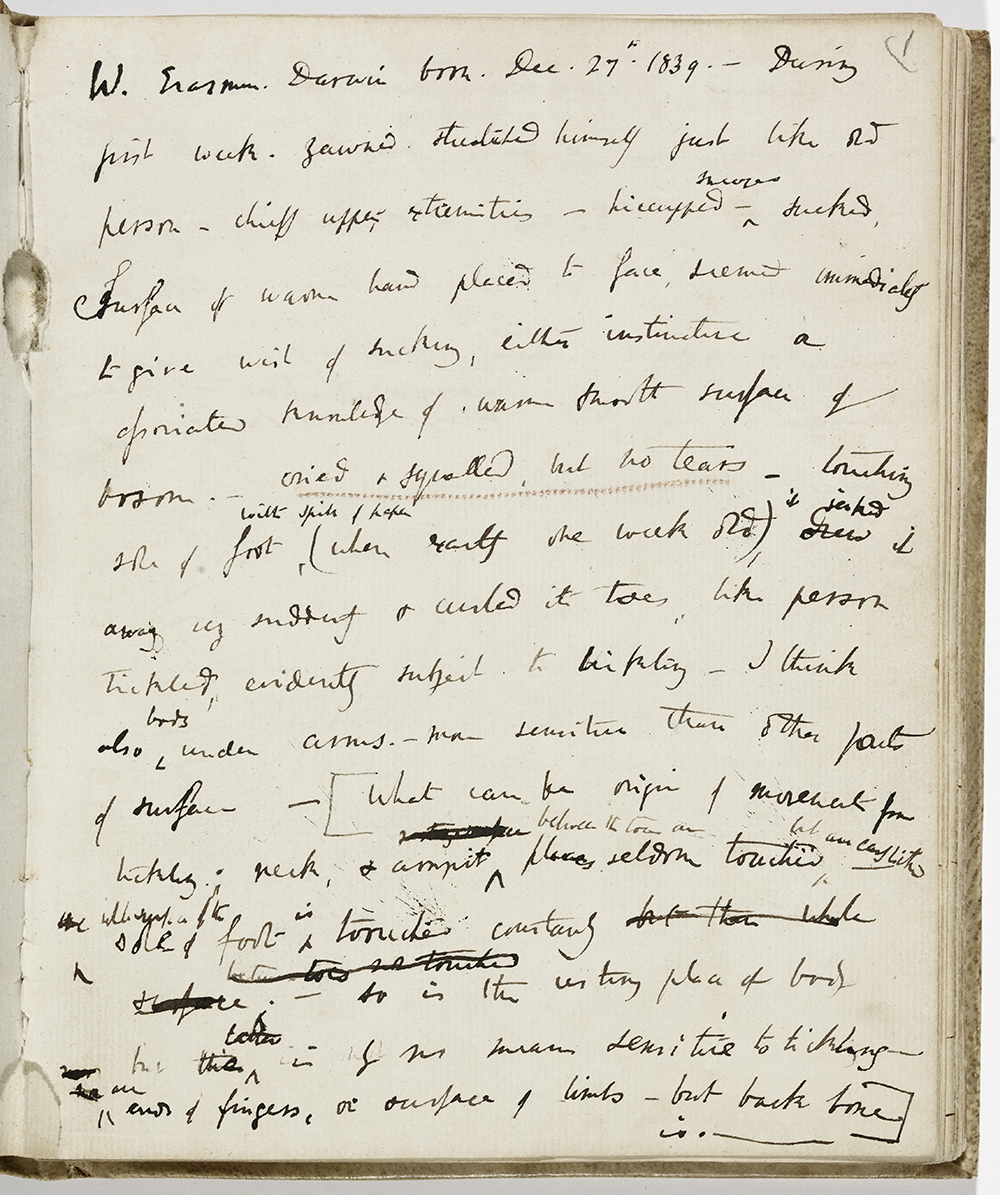 1
W. Erasmus. Darwin born. Dec. 27th. 1839. – During
first week. yawned. streatched himself just like old
person – chiefly upper extremities – hiccupped – sneezes sucked,
Surface of warm hand placed to face, seemed immediately
to give wish of sucking, either instinctive or
associated knowledge of warm smooth surface of
bosom. – cried & squalled, but no tears – touching
sole of foot with spill of paper, (when exactly one week old), it jerked it
away very suddenly & curled its toes, like person
tickled, evidently subject to tickling – I think
also body under arms. – more sensitive than other parts
of surface – [What can be origin of movement from
tickling: neck, & armpit between the toes are places seldom touched but are easily tickled
sole of foot is touched constantly but then whole
surface. – so is the resting place of body
but the latter is by no means sensitive to tickling –
are ends of fingers, or surface of limbs – but back bone
is. –]